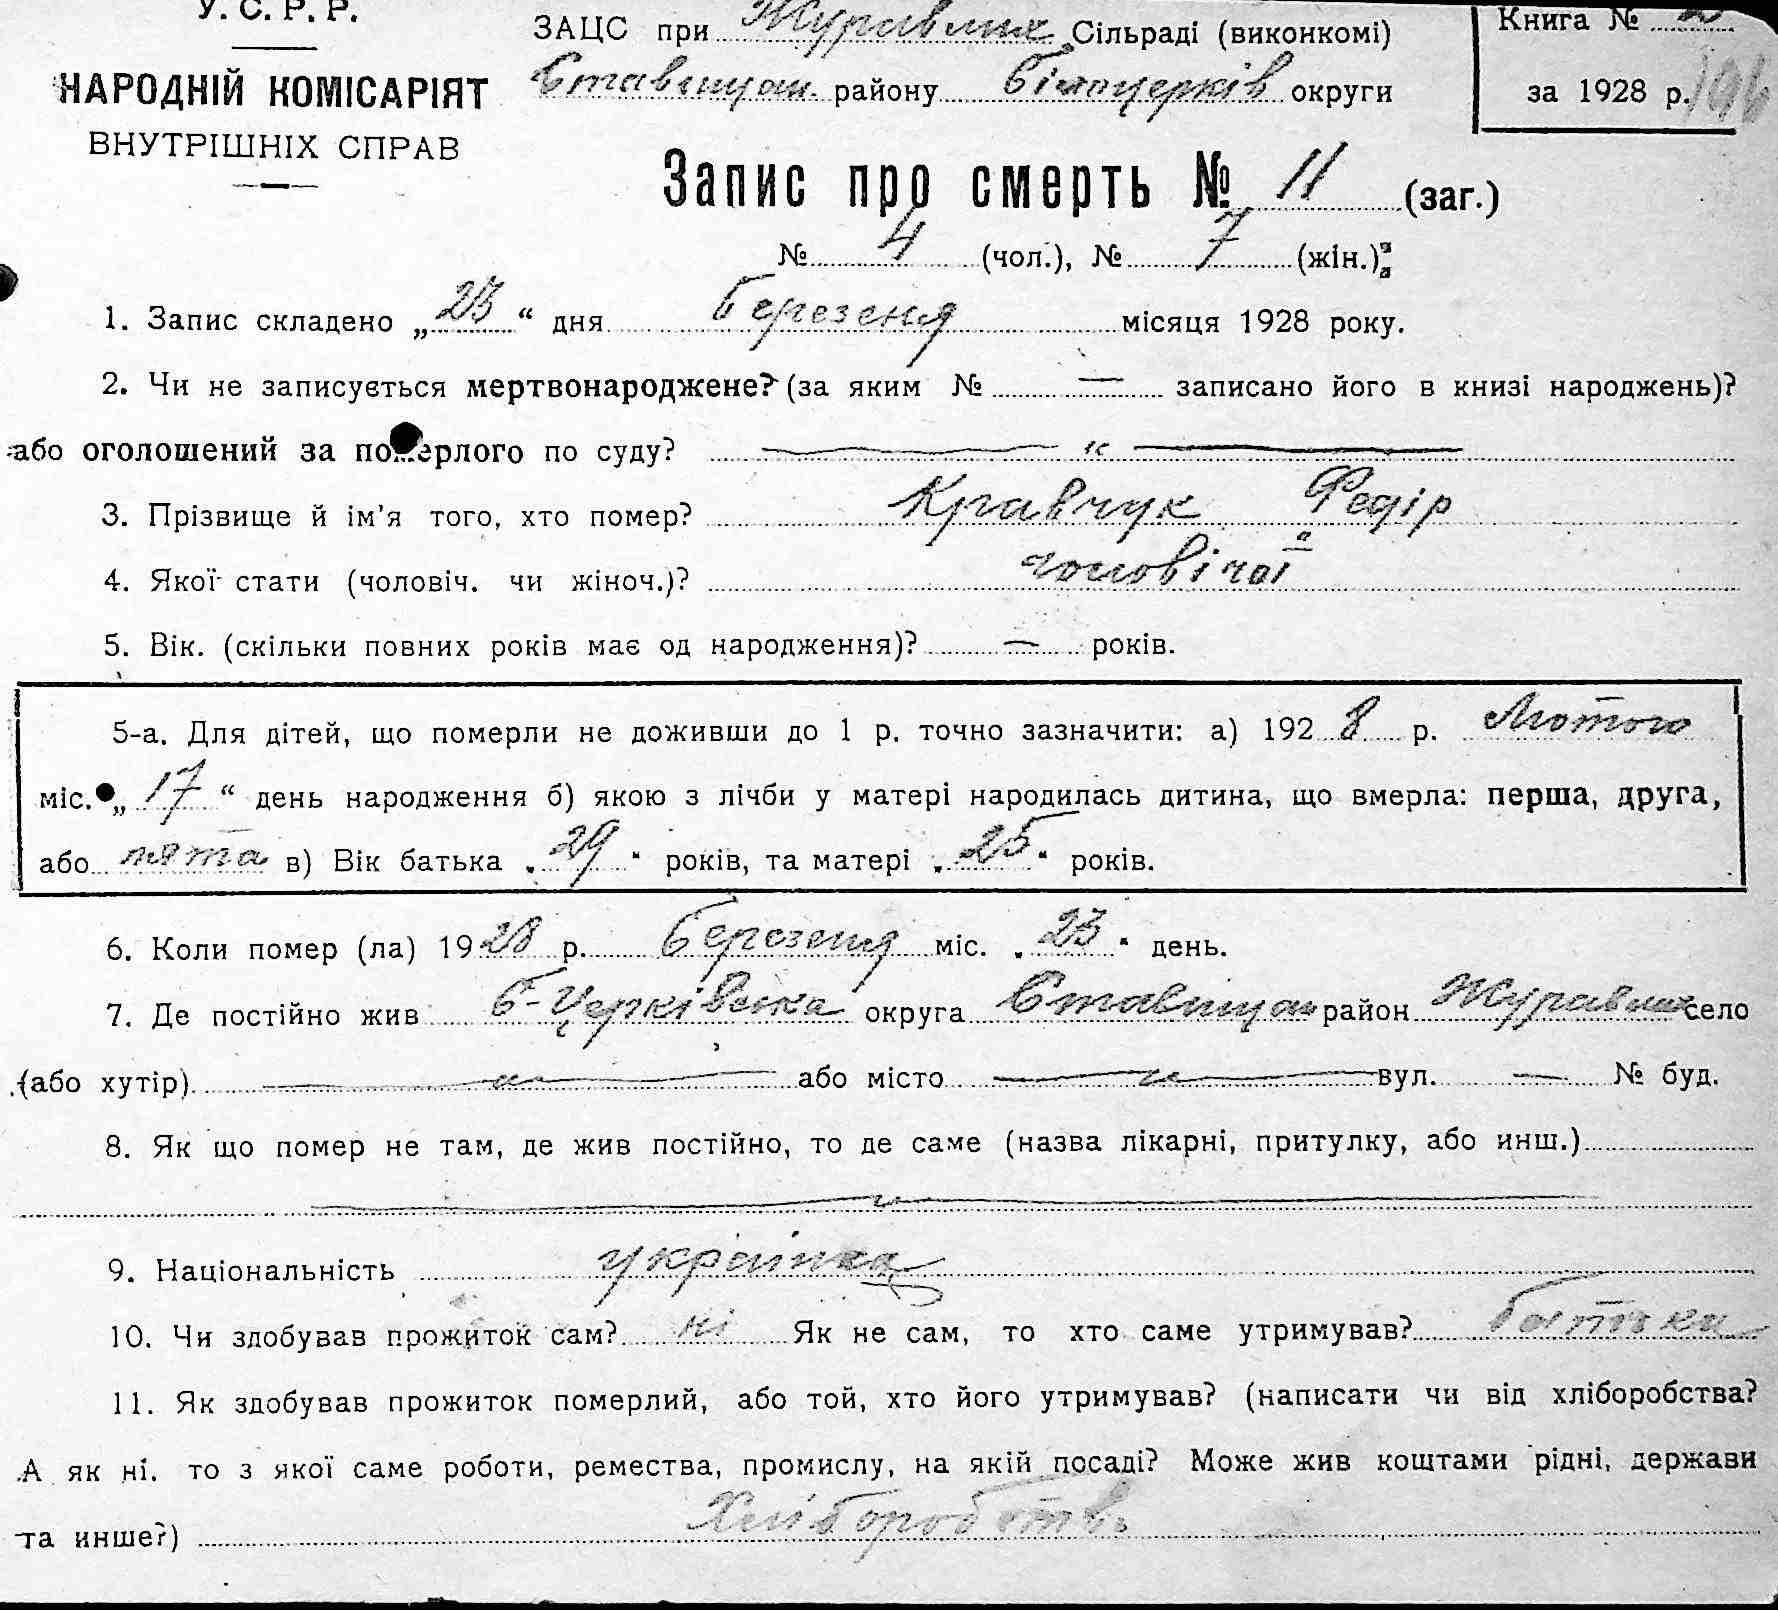 У. С. Р. Р.
НАРОДНІЙ КОМІСАРІЯТ
ВНУТРІШНІХ СПРАВ
ЗАЦС при Журавлих Сільраді (виконкомі)
Ставищан. району Білоцерків округи
Книга № 2
за 1928 р.
Запис про смерть № 11 (заг.)
№ 4 (чол.), № 7 (жін.)
1. Запис складено „23“ дня березеня місяця 1928 року.
2. Чи не записується мертвонароджене? (за яким № — записано його в книзі народжень)?
або оголошений за померлого по суду? — „ —
3. Прізвище й ім'я того, хто помер? Кравчук Федір
4. Якої стати (чоловіч. чи жіноч.)? чоловічої
5. Вік. (скільки повних років має од народження)? — років.
5-а. Для дітей, що померли не доживши до 1 р. точно зазначити: а) 1928 р. Лютого
міс. „17“ день народження б) якою з лічби у матері народилась дитина, що вмерла: перша, друга,
або пята в) Вік батька „29“ років, та матері „25“ років.
6. Коли помер (ла) 1928 р. Березеня міс. „23“ день.
7. Де постійно жив Б-Церківська округа Ставищан район Журавлиха село
(або хутір) — „ — або місто — „ — вул. — № буд.
8. Як що помер не там, де жив постійно, то де саме (назва лікарні, притулку, або инш.)
— „ —
9. Національність українка
10. Чи здобував прожиток сам? ні Як не сам, то хто саме утримував? батьки
11. Як здобував прожиток померлий, або той, хто його утримував? (написати чи від хліборобства?
А як ні. то з якої саме роботи, ремества, промислу, на якій посаді? Може жив коштами рідні, держави
та инше?) Хліборобств.